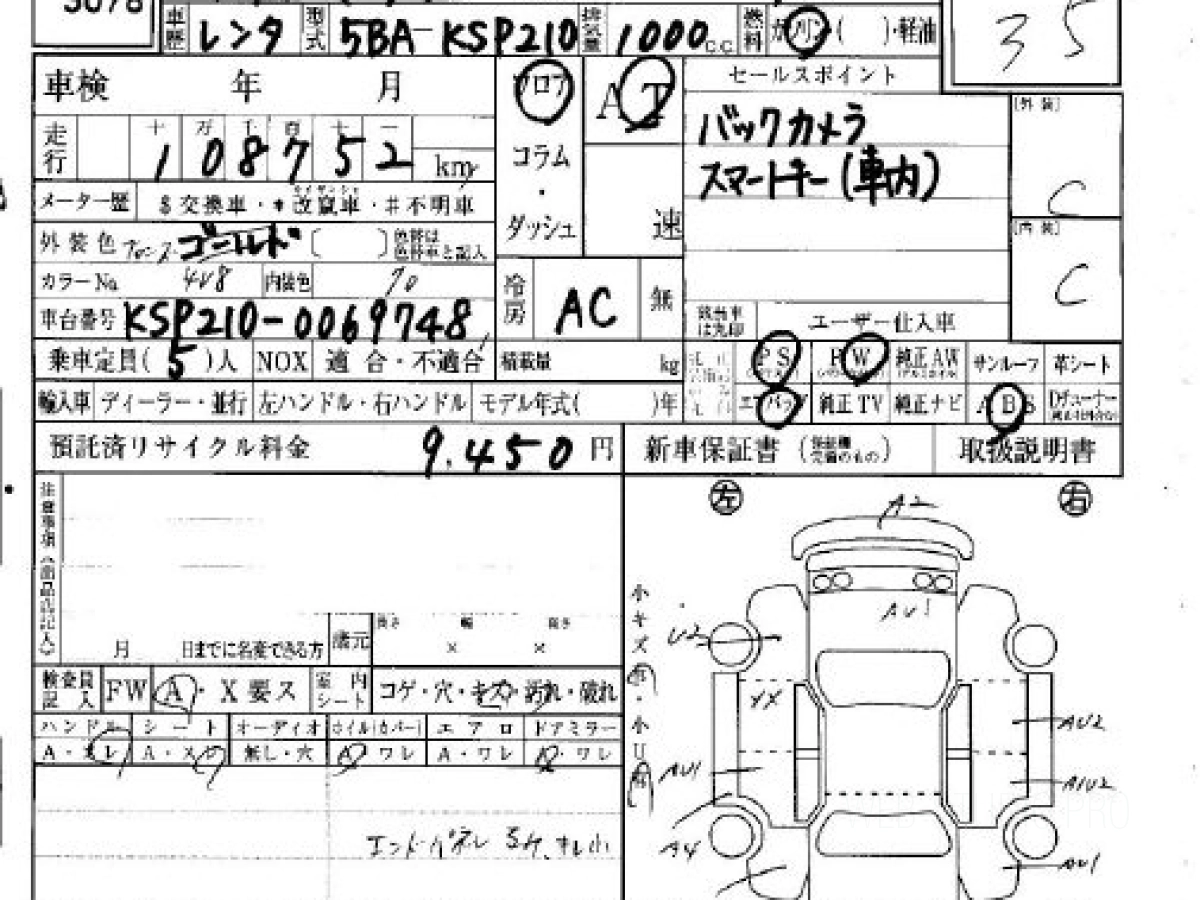 3078
車歴 レンタ 型式 5BA-KSP210 排気量 1000 c.c. 燃料 ガソリン( )・軽油
35
車検 年 月
フロア
AT
セールスポイント
バックカメラ
スマートキー(車内)
走行 十 万 千 百 十 一
1 0 8 7 5 2 km
コラム
・
ダッシュ
速
[外装]
C
[内装]
C
メーター歴 $交換車・*改竄車・#不明車
カイザンシャ
外装色 ブロンズ ゴールド ( ) 色替は色替車と記入
カラーNo. 4V8 内装色 70
冷房 AC 無
該当車は丸印 ユーザー仕入車
車台番号 KSP210-0069748
乗車定員( 5 )人 NOX 適合・不適合 積載量 kg
PS PW 純正AW サンルーフ 革シート
輸入車 ディーラー・並行 左ハンドル・右ハンドル モデル年式( )年
エアバッグ 純正TV 純正ナビ ABS
預託済リサイクル料金 9,450 円
新車保証書 取扱説明書
左 右
注意事項(出品店記入)
月 日までに名変できる方 歳元 長さ 幅 高さ
× ×
検査員記入 FW A・X要ス 室内シート コゲ・穴・キズ・汚れ・破れ
ハンドル シート オーディオ ホイル(カバー) エアロ ドアミラー
A・スレ A・スレ 無し・穴 A・ワレ A・ワレ A・ワレ
A2
AU1
U2
YX
AU2
AU1
A1U2
A4
AU1